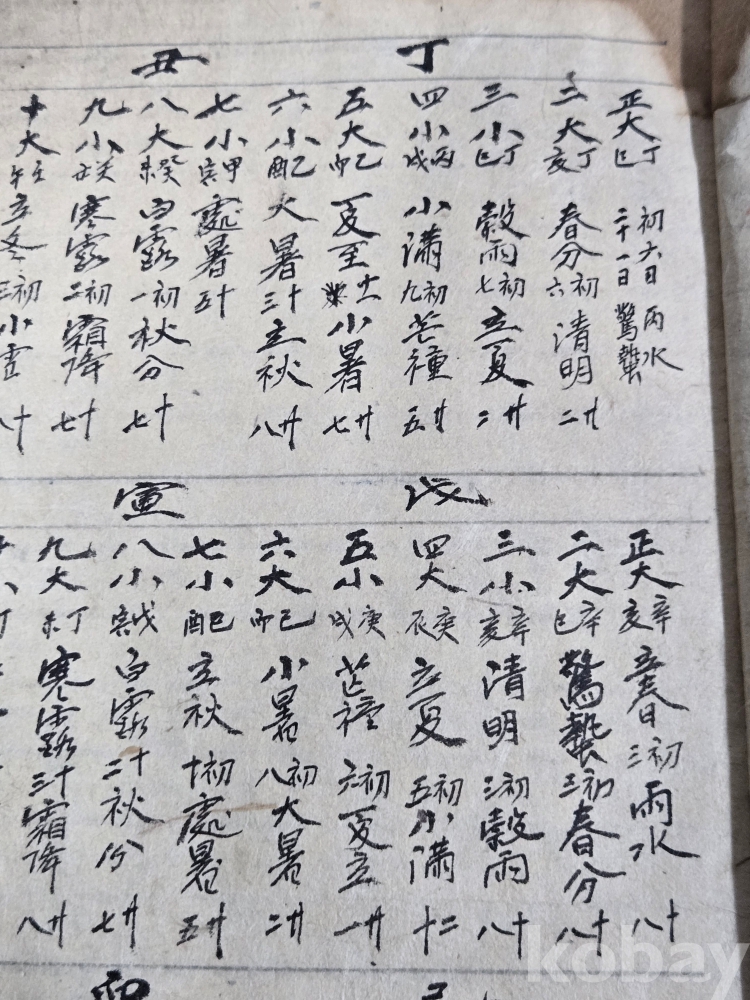 丁丑
正大 丁巳 初六日 雨水 二十一日 驚蟄
二大 丁亥 春分 初六 清明 廿二
三小 丁巳 穀雨 初七 立夏 廿二
四小 丙戌 小满 初九 芒種 廿五
五大 乙卯 夏至 小暑 廿七
六小 乙酉 大暑 十三 立秋 廿八
七小 甲寅 處暑 十五
八大 癸未 白露 初一 秋分 十七
九小 癸丑 寒露 初二 霜降 十七
十大 壬午 立冬 初三 小雪 十八
戊寅
正大 辛亥 立春 初三 雨水 十八
二大 辛巳 驚蟄 初三 春分 十八
三小 辛亥 清明 初三 穀雨 十八
四大 庚辰 立夏 初五 小满 二十
五小 庚戌 芒種 初六 夏立 廿一
六大 己卯 小暑 初八 大暑 廿二
七小 己酉 立秋 初十 處暑 廿五
八小 戊寅 白露 十二 秋份 廿七
九大 丁未 寒露 十三 霜降 廿八
kobay